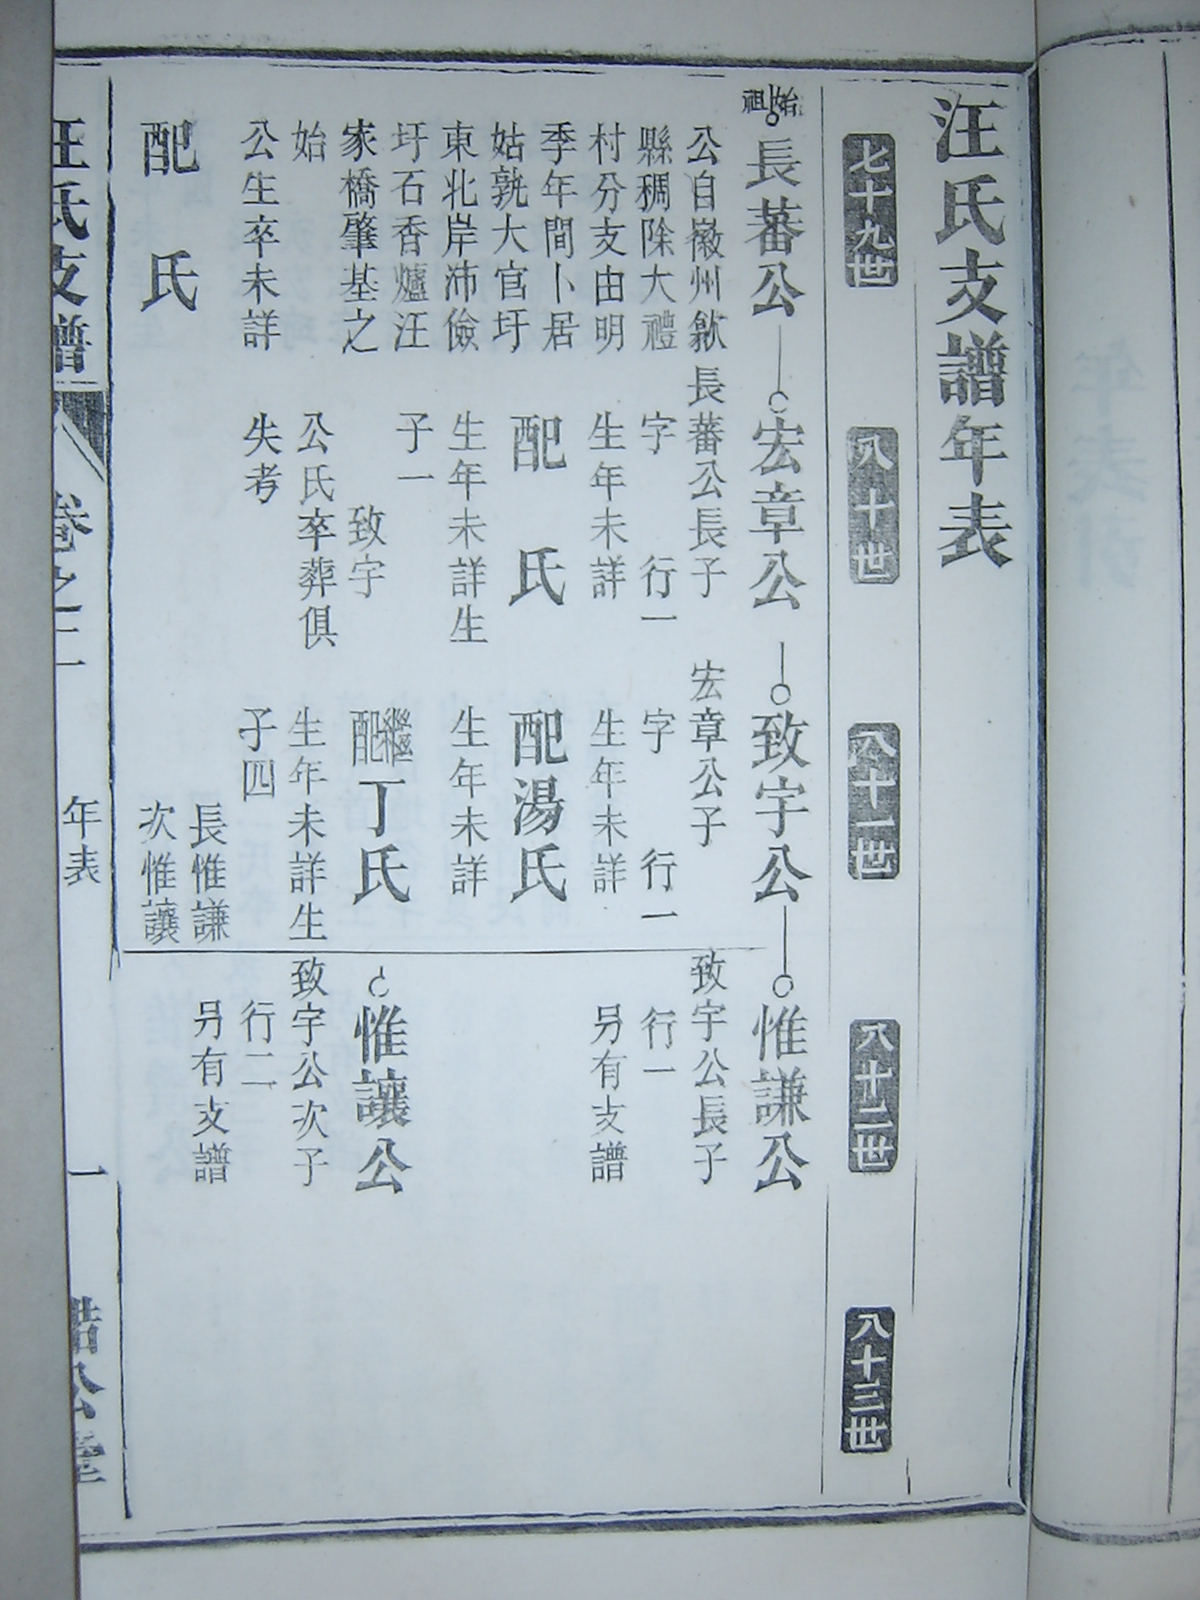 汪氏支譜年表
七十九世
八十世
八十一世
八十二世
八十三世
始祖
長蕃公
公自徽州歙
縣稠除大禮
村分支由明
季年間卜居
姑孰大官圩
東北岸沛儉
圩石香爐汪
家橋肇基之
始
公生卒未詳
配 氏
宏章公
長蕃公長子
字 行一
生年未詳
配 氏
生年未詳生
子一
致宇
公氏卒葬俱
失考
致宇公
宏章公子
字 行一
生年未詳
配湯氏
生年未詳
繼配丁氏
生年未詳生
子四
長惟謙
次惟讓
惟謙公
致宇公長子
行一
另有支譜
惟讓公
致宇公次子
行二
另有支譜
汪氏支譜
卷之二
年表
一
公堂
年表引